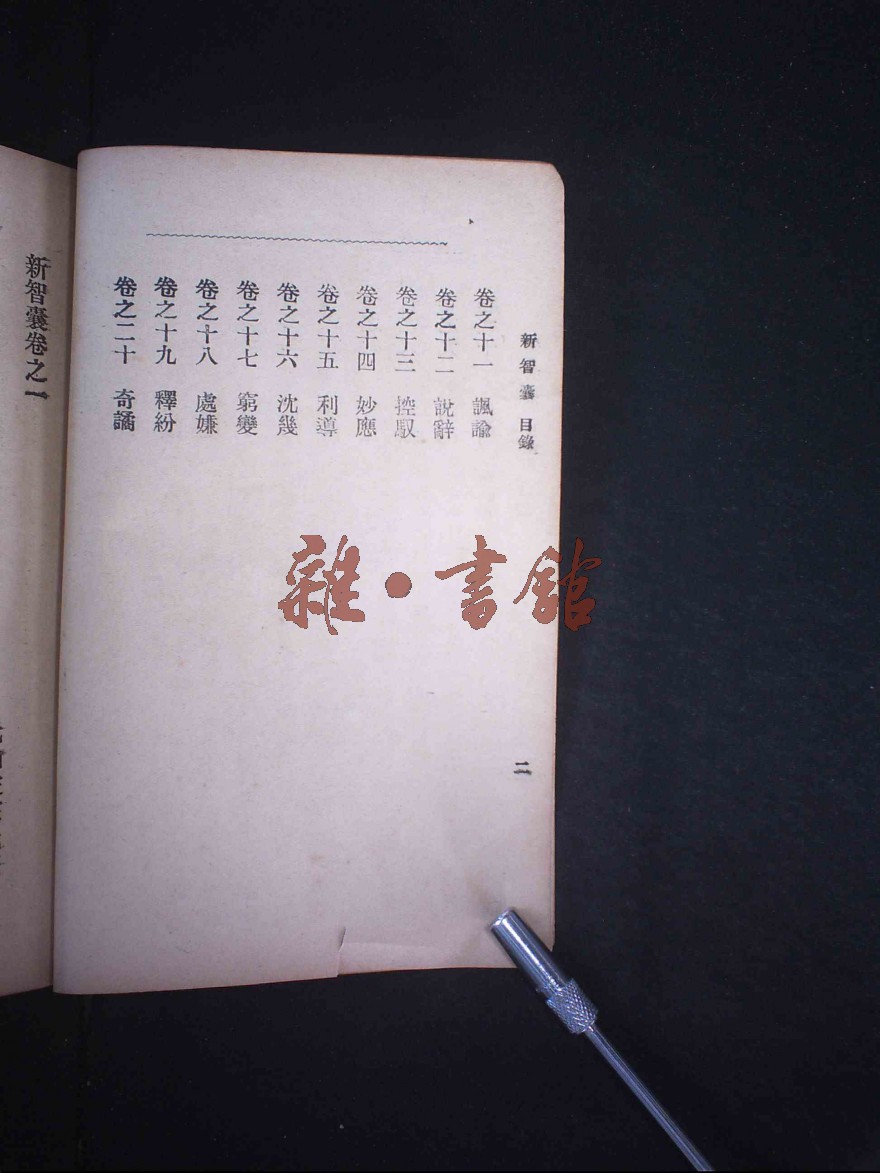 新智囊 目錄
二
卷之十一 諷諭
卷之十二 說辭
卷之十三 控馭
卷之十四 妙應
卷之十五 利導
卷之十六 沈幾
卷之十七 窮變
卷之十八 處嫌
卷之十九 釋紛
卷之二十 奇譎
新智囊卷之一
雜·書館